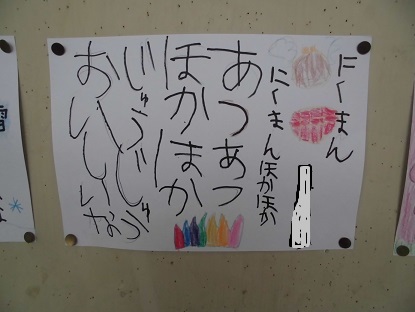 にくまん
にくまんほかほか
あつあつ
ほかほか
じゅうじゅう
おいしいな